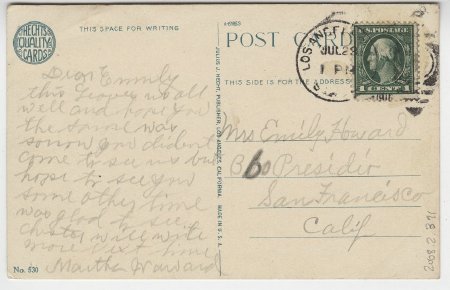 HECHT'S
QUALITY
CARDS
THIS SPACE FOR WRITING
POST CARD
THIS SPACE FOR THE ADDRESS
LOS ANGELES
JUL 23
1 PM
1916
U.S. POSTAGE
1 CENT 1
Dear Emmily
this leaves us all
well and hope you
the same was
sorrow you dident
come to see us but
hope to see you
some other time
was glad to see
will write
more next time
Martha
Mrs Emily Howard
Bo Presidio
San Francisco
Calif
No. 530
PUBLISHER, LOS ANGELES, CALIFORNIA.
MADE IN U.S.A.